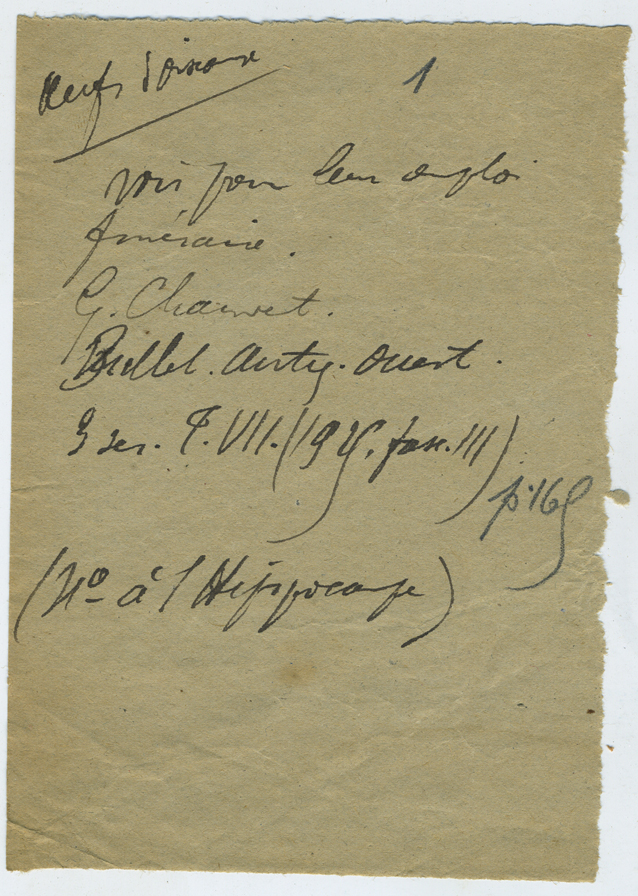 Oeufs d'oiseaux
1
voir pour leur emploi
funéraire.
G. Chauvet.
Bullet. Antiq. Ouest.
3 ser. T. VII. (1925. fasc. III)
p. 165
(N° à l'Hippocampe)